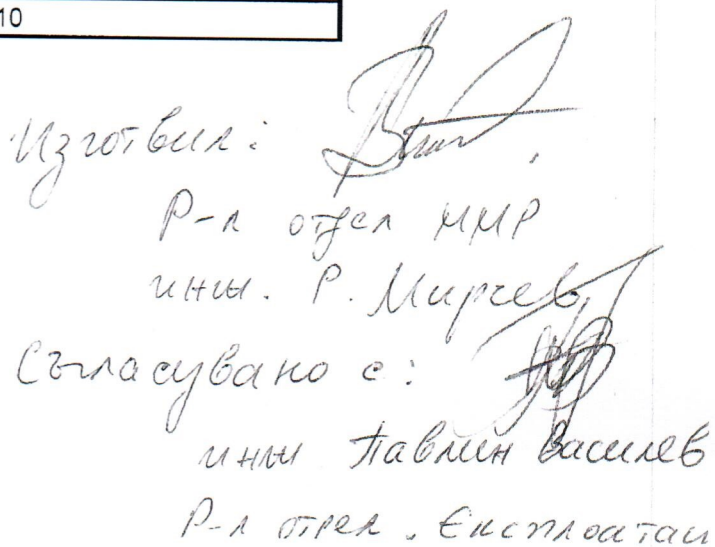 10
Изготвил:
Р-л отдел ММР
инж. Р. Мирчев
Съгласувано с:
инж Павлин Василев
Р-л отдел . Експлоатац